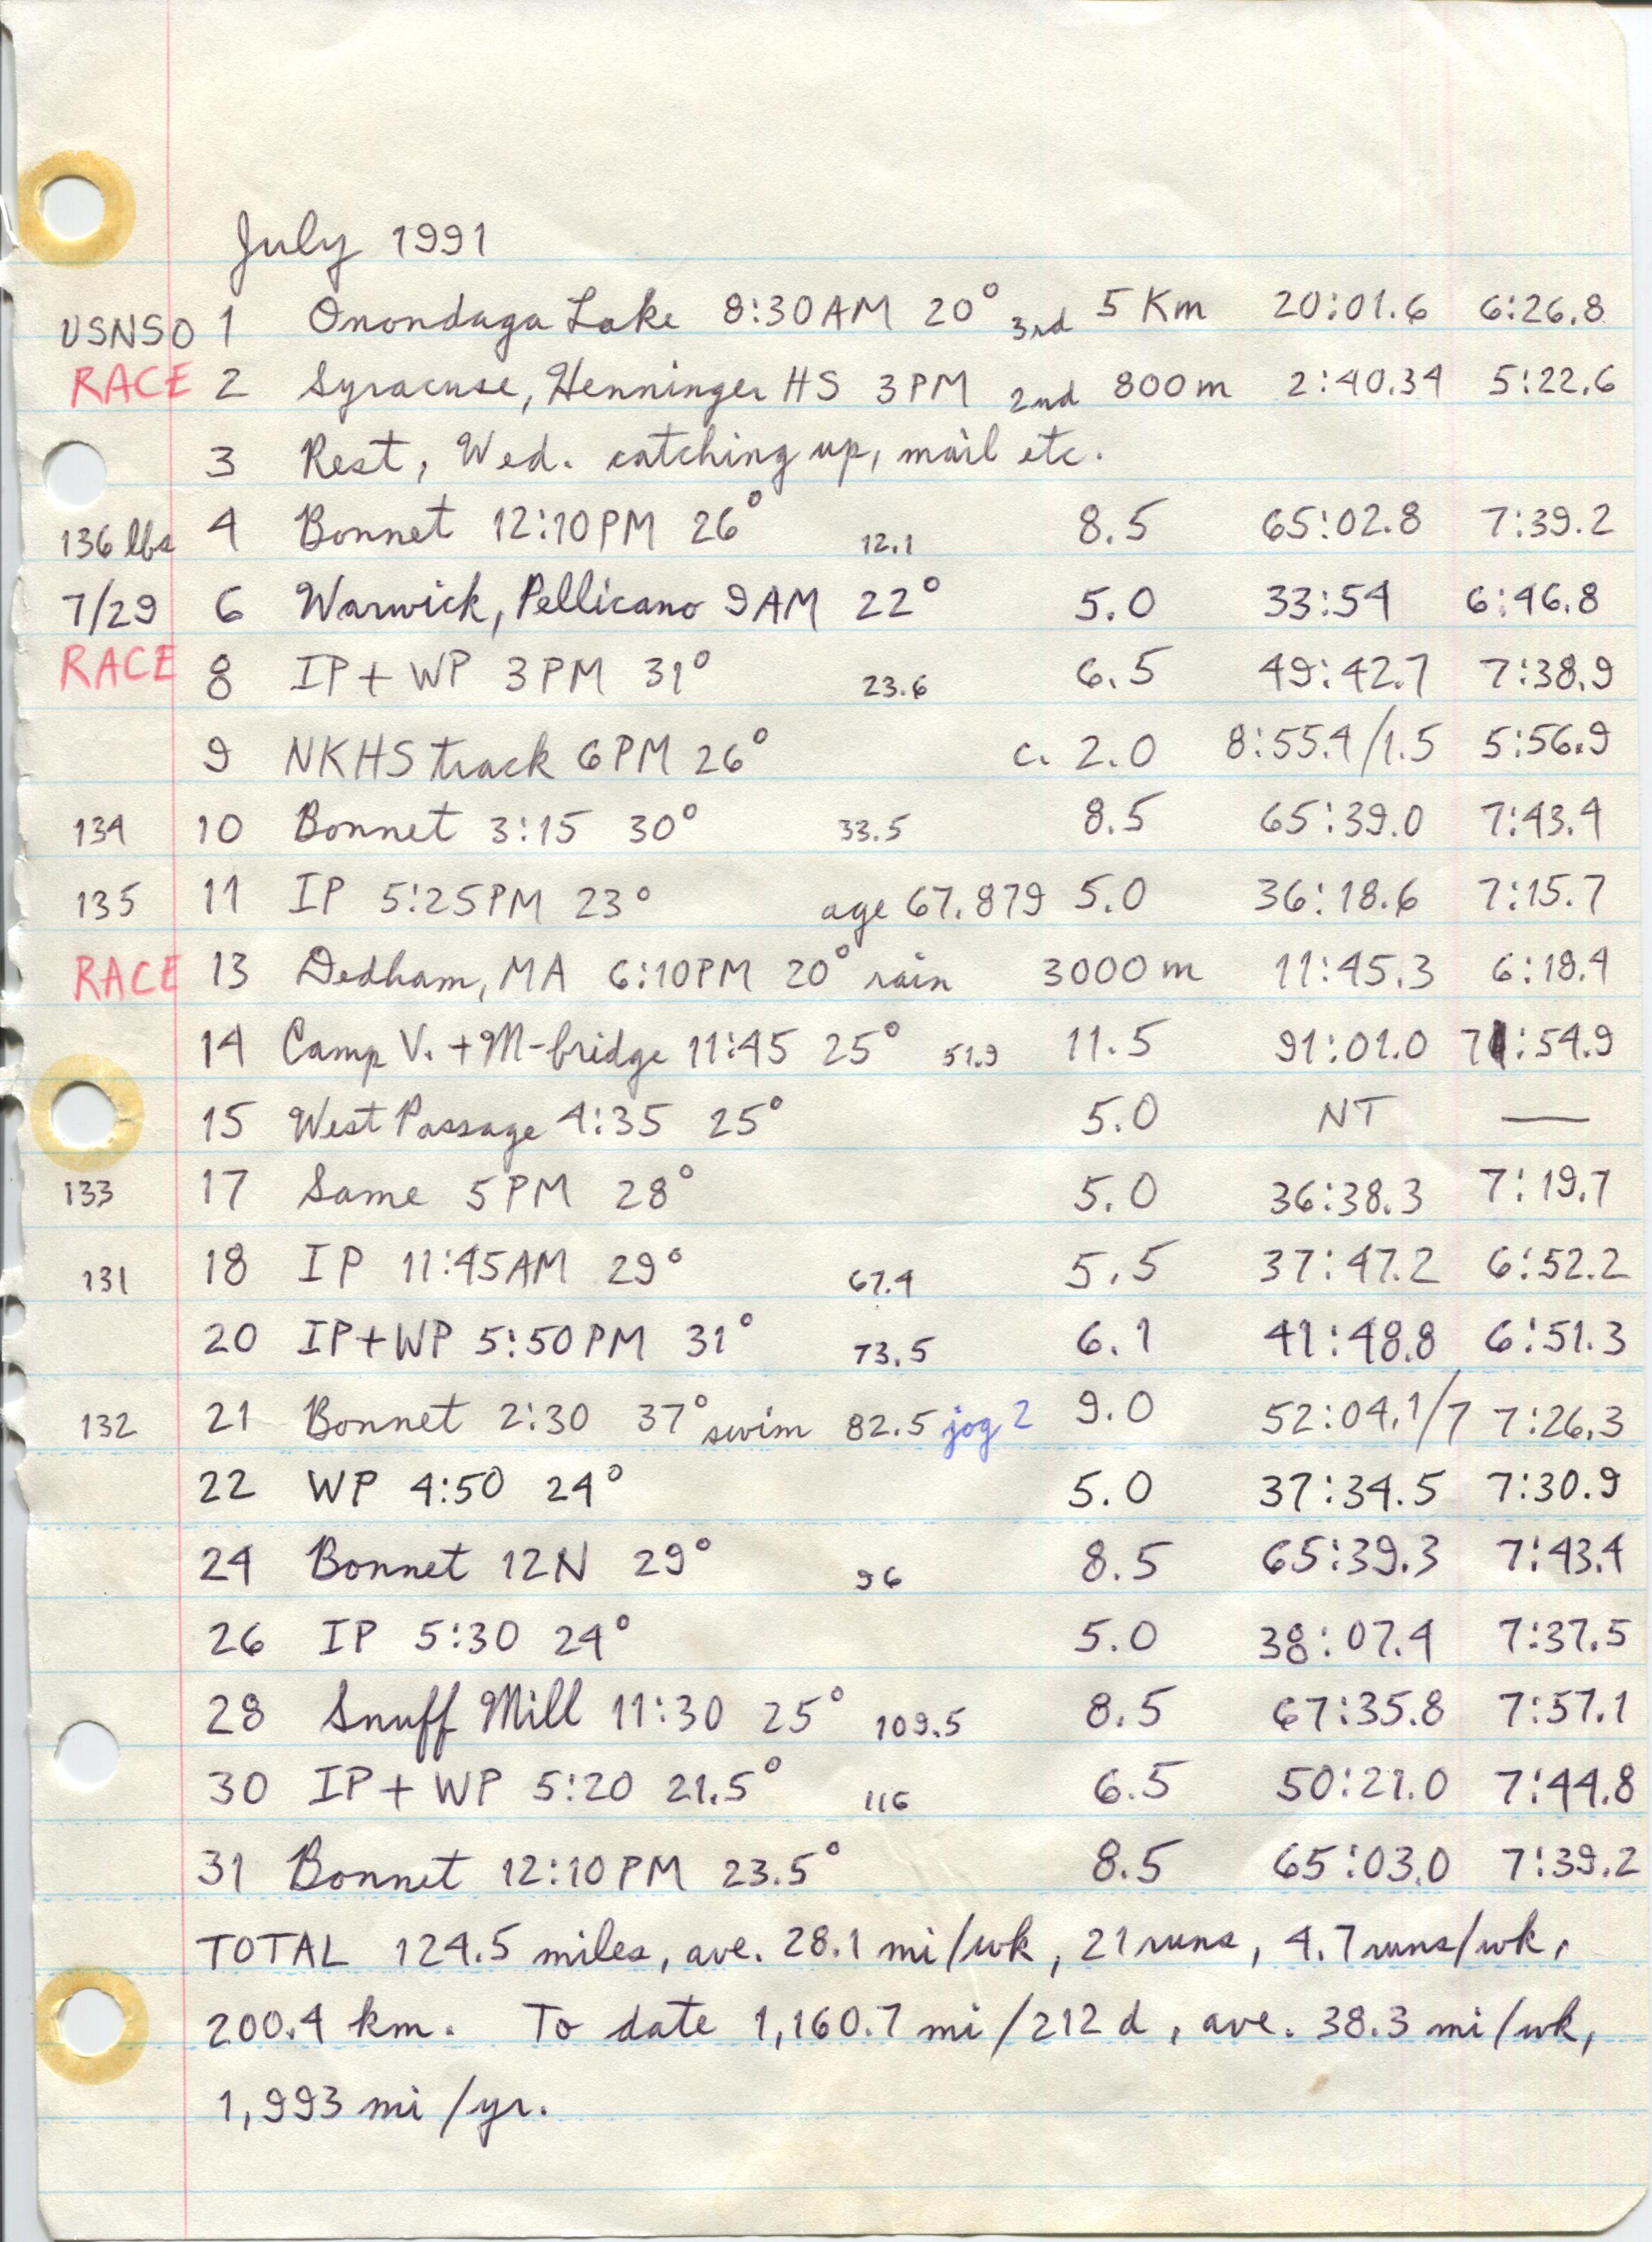 July 1991
USNSO 1 Onondaga Lake 8:30AM 20° 3rd 5 Km 20:01.6 6:26.8
RACE 2 Syracuse, Henninger HS 3PM 2nd 800m 2:40.34 5:22.6
3 Rest, Wed. catching up, mail etc.
136 lbs 4 Bonnet 12:10PM 26° 12.1 8.5 65:02.8 7:39.2
7/29 6 Warwick, Pellicano 9AM 22° 5.0 33:54 6:46.8
RACE 8 IP + WP 3PM 31° 23.6 6.5 49:42.7 7:38.9
9 NKHS track 6PM 26° c. 2.0 8:55.4/1.5 5:56.9
134 10 Bonnet 3:15 30° 33.5 8.5 65:39.0 7:43.4
135 11 IP 5:25PM 23° age 67.879 5.0 36:18.6 7:15.7
RACE 13 Dedham, MA 6:10PM 20° rain 3000 m 11:45.3 6:18.4
14 Camp V. + M-bridge 11:45 25° 51.9 11.5 91:01.0 7:54.9
15 West Passage 4:35 25° 5.0 NT —
133 17 Same 5PM 28° 5.0 36:38.3 7:19.7
131 18 IP 11:45AM 29° 67.4 5.5 37:47.2 6:52.2
20 IP+WP 5:50PM 31° 73.5 6.1 41:48.8 6:51.3
132 21 Bonnet 2:30 37° swim 82.5 jog 2 9.0 52:04.1/7 7:26.3
22 WP 4:50 24° 5.0 37:34.5 7:30.9
24 Bonnet 12N 29° 96 8.5 65:39.3 7:43.4
26 IP 5:30 24° 5.0 38:07.4 7:37.5
28 Snuff Mill 11:30 25° 109.5 8.5 67:35.8 7:57.1
30 IP + WP 5:20 21.5° 116 6.5 50:21.0 7:44.8
31 Bonnet 12:10PM 23.5° 8.5 65:03.0 7:39.2
TOTAL 124.5 miles, ave. 28.1 mi/wk, 21 runs, 4.7 runs/wk,
200.4 km. To date 1,160.7 mi/212 d, ave. 38.3 mi/wk,
1,993 mi/yr.